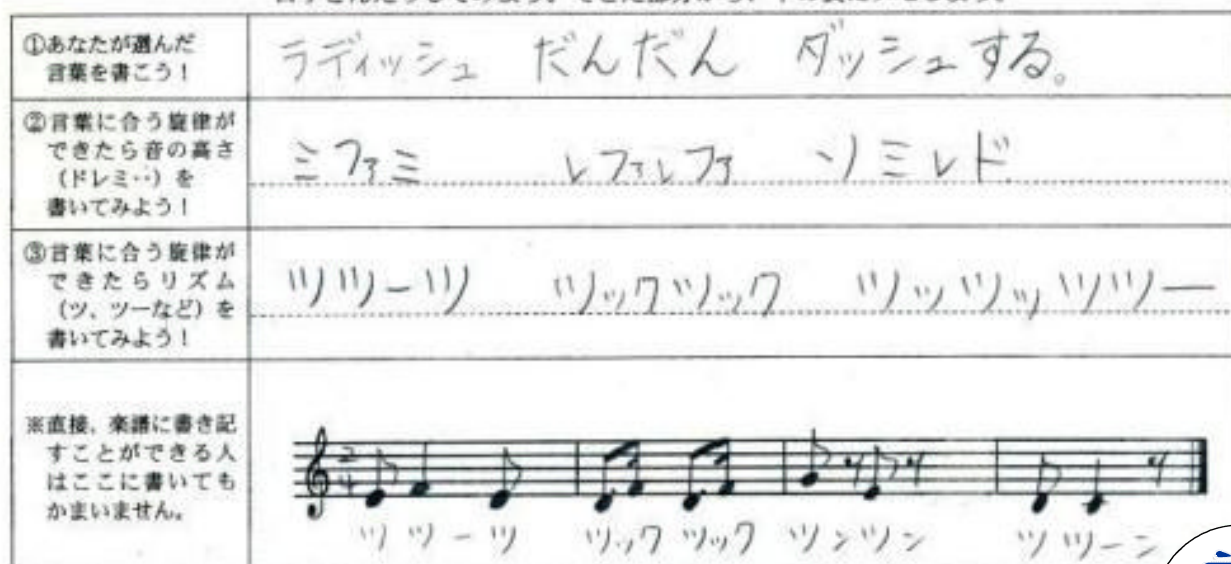 ①あなたが選んだ
言葉を書こう！
ラディッシュ だんだん ダッシュする。
②言葉に合う旋律が
できたら音の高さ
（ドレミ‥）を
書いてみよう！
ミファミ レファレファ ソミレド
③言葉に合う旋律が
できたらリズム
（ツ、ツーなど）を
書いてみよう！
ツツーツ ツックツック ツッツッツツー
※直接、楽譜に書き記
すことができる人
はここに書いても
かまいません。
2
4
ツ ツーツ ツック ツック ツンツン ツ ツーン